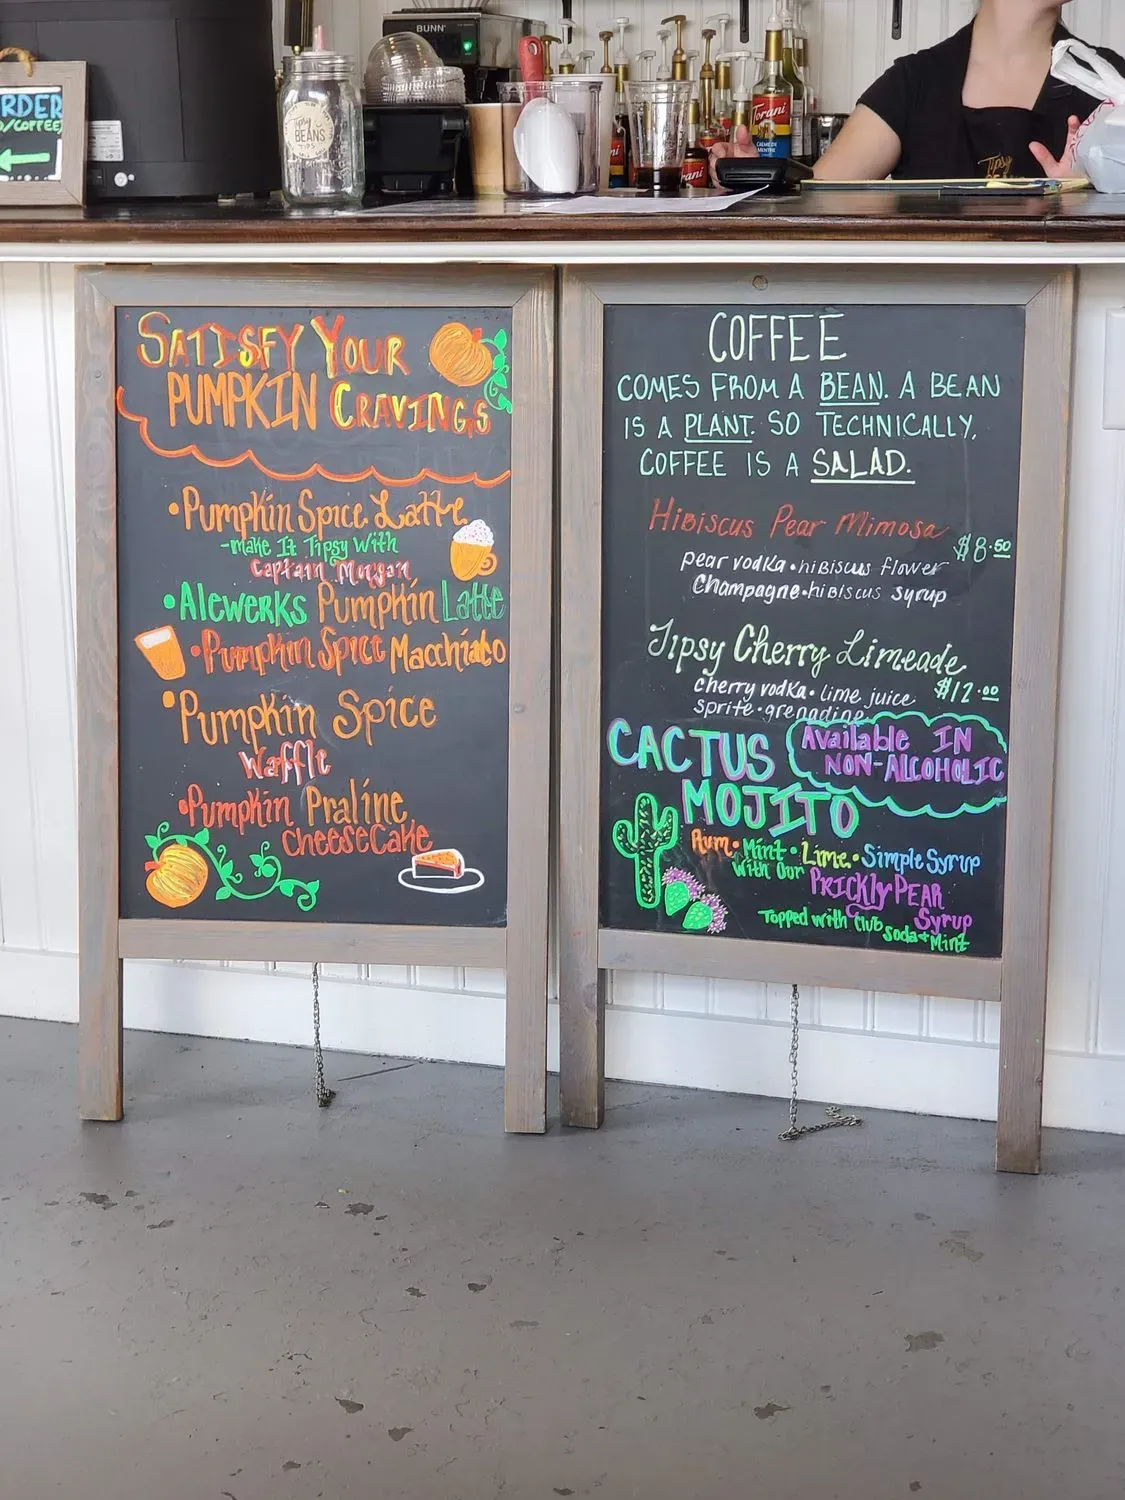 BUNN
RDER
D/COFFEE
Tipsy
BEANS
TIPS
Torani
CRÈME DE
MENTHE
rani
Tipsy
SATISFY YOUR
PUMPKIN CRAVINGS
•Pumpkin Spice Latte
-make It Tipsy With
Captain Morgan
•Alewerks Pumpkin Latte
•Pumpkin Spice Macchiato
•Pumpkin Spice
Waffle
•Pumpkin Praline
CheeseCake
COFFEE
COMES FROM A BEAN. A BEAN
IS A PLANT. SO TECHNICALLY,
COFFEE IS A SALAD.
Hibiscus Pear Mimosa
$8.50
pear vodka•hibiscus flower
Champagne•hibiscus syrup
Tipsy Cherry Limeade
$12.00
cherry vodka•lime juice
sprite•grenadine
CACTUS
MOJITO
Available IN
NON-ALCOHOLIC
Rum•Mint•Lime•Simple Syrup
With Our PRICKLY PEAR
Syrup
Topped with Club soda+Mint